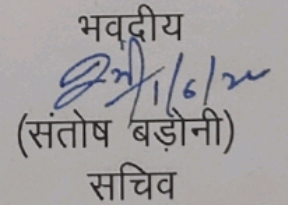 भवदीय
1/6/20
(संतोष बड़ोनी)
सचिव